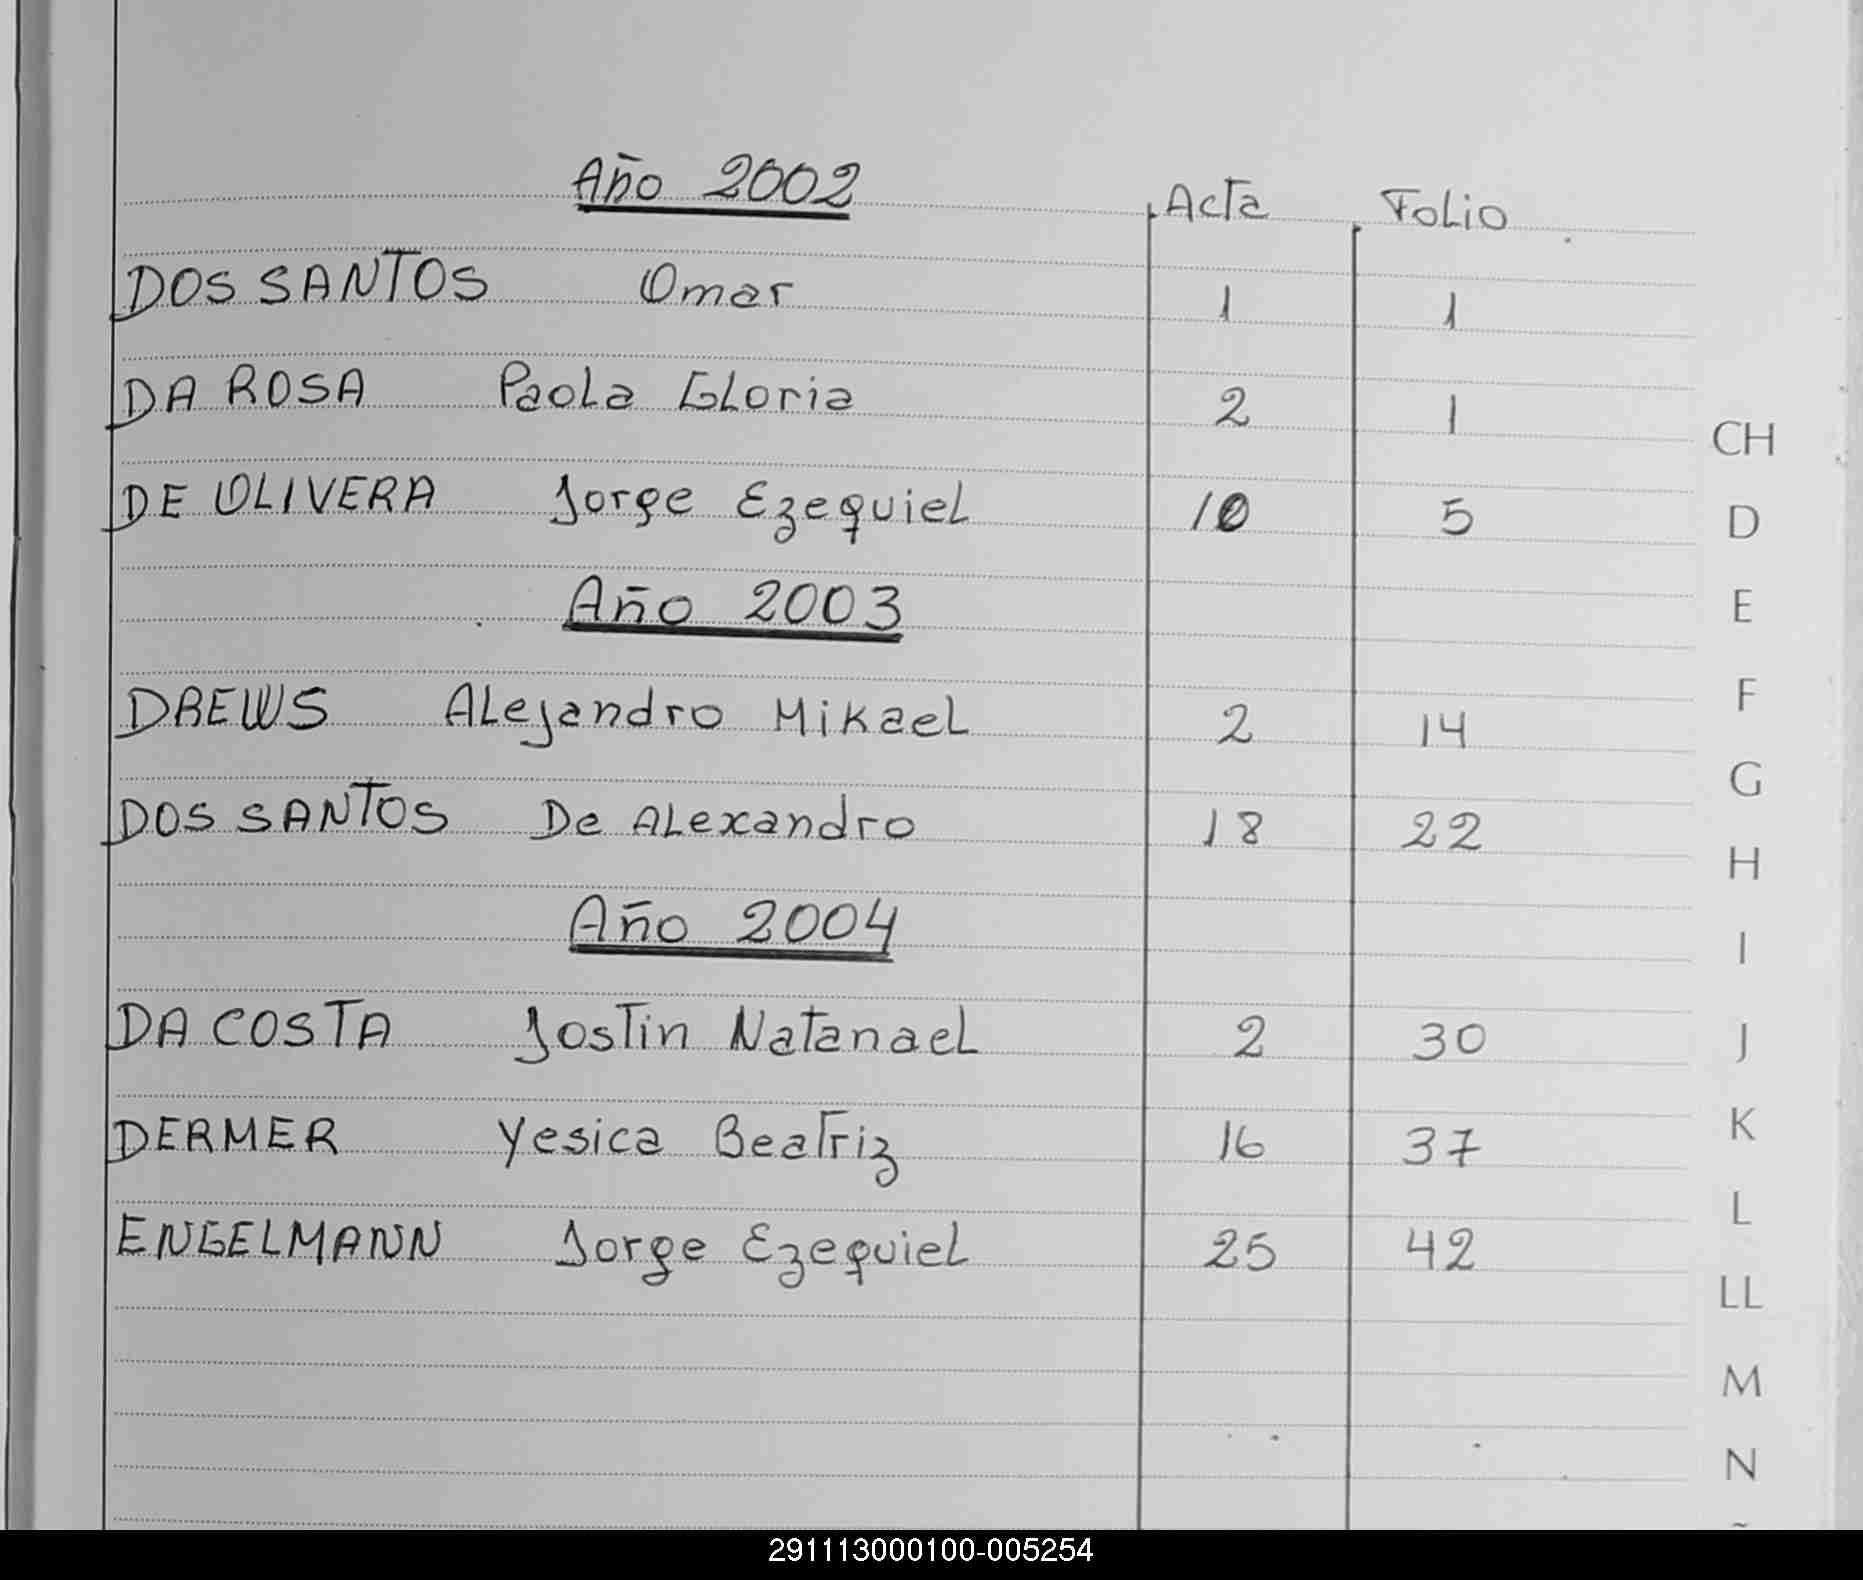 Año 2002 Acta Folio
DOS SANTOS Omar 1 1
DA ROSA Paola Gloria 2 1
CH
DE OLIVERA Jorge Ezequiel 10 5
D
Año 2003
E
F
DREWS Alejandro Mikael 2 14
G
DOS SANTOS De Alexandro 18 22
H
Año 2004
I
DA COSTA Jostin Natanael 2 30
J
DERMER Yesica Beatriz 16 37
K
L
ENGELMANN Jorge Ezequiel 25 42
LL
M
N
291113000100-005254